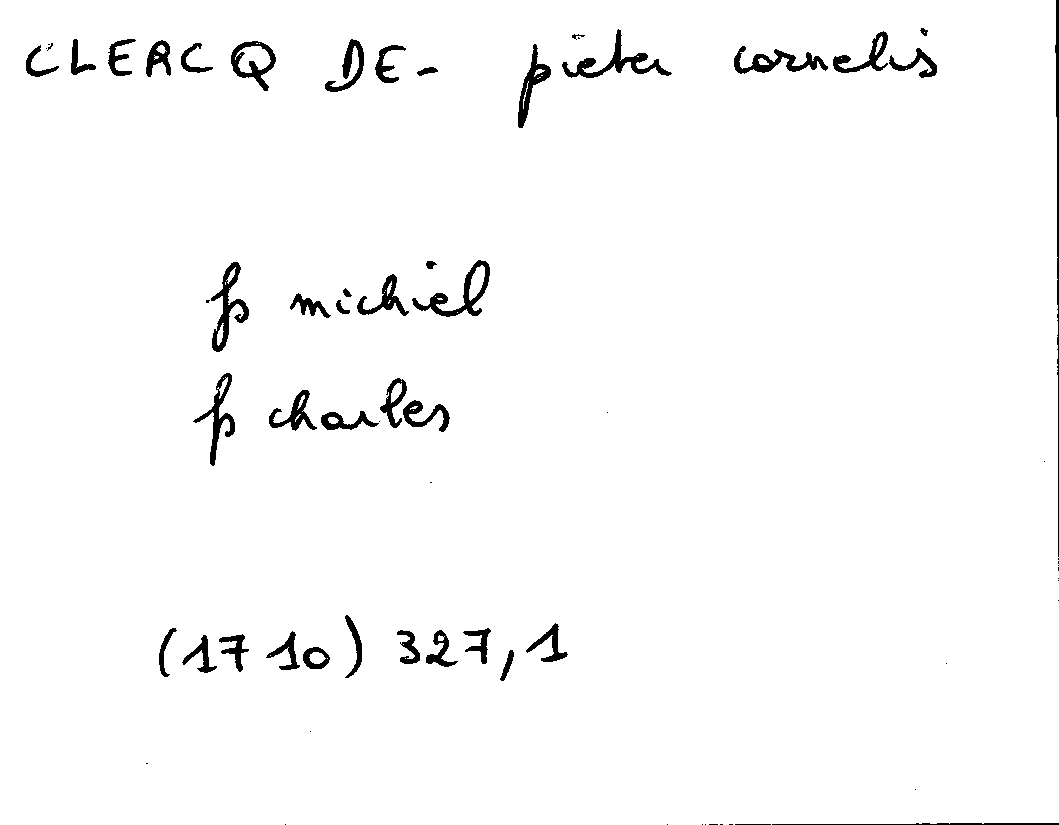 CLERCQ DE- pieter cornelis
fs michiel
fs charles
(1710) 327,1